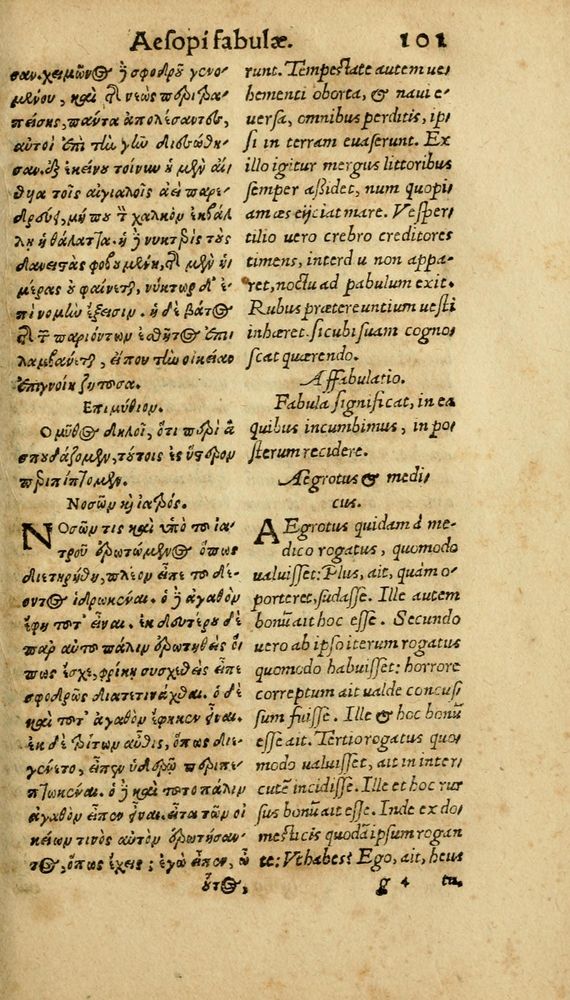 Aesopi fabulæ. 101
σαν. χειμῶνος ἢ σφοδροῦ γενο-
μένου, καὶ τῆς νεὼς περιτρα-
πείσης, πάντα ἀπολέσαντες,
αὐτοὶ ἐπὶ τὴν γῆν διεσώθη-
σαν. ἐξ ἐκείνου τοίνυν ἡ μὲν αἴ-
θυα τοῖς αἰγιαλοῖς ἀεὶ παρε-
δρεύει, μή που τὸν χαλκὸν ἐκβάλ
λῃ ἡ θάλαττα. ἡ δὲ νυκτερὶς τοὺς
δανειστὰς φοβουμένη, τῆς μὲν ἡ-
μέρας οὐ φαίνεται, νύκτωρ δ' ἐ-
πὶ νομὴν ἔξεισιν. ἡ δὲ βάτος
τῆς τῶν παριόντων ἐσθῆτος ἐπι-
λαμβάνεται, εἴ που τὴν οἰκείαν
ἐπιγνοίη ζητοῦσα.
Επιμύθιον.
Ο μῦθος δηλοῖ, ὅτι περὶ ἃ
σπουδάζομεν, τούτοις ἐς ὕστερον
περιπίπτομεν.
Νοσῶν καὶ ἰατρός.
ΝΟσῶν τις καὶ ὑπὸ τοῦ ἰα-
τροῦ ἐρωτώμενος ὅπως
διετηρήθη, πλέον εἶπε τοῦ δέ-
οντος ἱδρωκέναι. ὁ δὲ ἀγαθὸν
ἔφη τοῦτ' εἶναι. ἐκ δευτέρου δὲ
παρ' αὐτοῦ πάλιν ἐρωτηθεὶς ὅ-
πως ἔσχε, φρίκῃ συσχεθεὶς εἶπε
σφοδρῶς διατετινάχθαι. ὁ δὲ
καὶ τοῦτ' ἀγαθὸν ἔφησεν εἶναι.
ἐκ δὲ τρίτου αὖθις, ὅπως διε-
γένετο, εἶπεν ὑδέρῳ περιπε-
πτωκέναι. ὁ δὲ καὶ τοῦτο πάλιν
ἀγαθὸν εἶπεν εἶναι. εἶτα τῶν οἰ
κείων τινὸς αὐτὸν ἐρωτήσαν-
τος, ὅπως ἔχεις; ἐγὼ εἶπεν, ὦ
οὗτος,
runt. Tempestate autem ue-
hementi oborta, & naui e-
uersa, omnibus perditis, ip-
si in terram euaserunt. Ex
illo igitur mergus littoribus
semper aßidet, num quopi-
am æs eijciat mare. Vesper-
tilio uero crebro creditores
timens, interdiu non appa-
ret, noctu ad pabulum exit.
Rubus prætereuntium uesti
inhæret. sicubi suam cogno-
scat quærendo.
Affabulatio.
Fabula significat, in ea
quibus incumbimus, in po-
sterum recidere.
Ægrotus & medi-
cus.
AEgrotus quidam à me-
dico rogatus, quomodo
ualuisset: Plus, ait, quàm o-
porteret, sudasse. Ille autem
bonū ait hoc esse. Secundo
uero ab ipso iterum rogatus
quomodo habuisset: horrore
correptum ait ualde concus-
sum fuisse. Ille & hoc bonū
esse ait. Tertio rogatus quo-
modo ualuisset, ait in inter-
cutē incidisse. Ille et hoc rur
sus bonū ait esse. Inde ex do-
mesticis quodā ipsum rogan
te: Vt habes? Ego, ait, heus
g 4 tu,